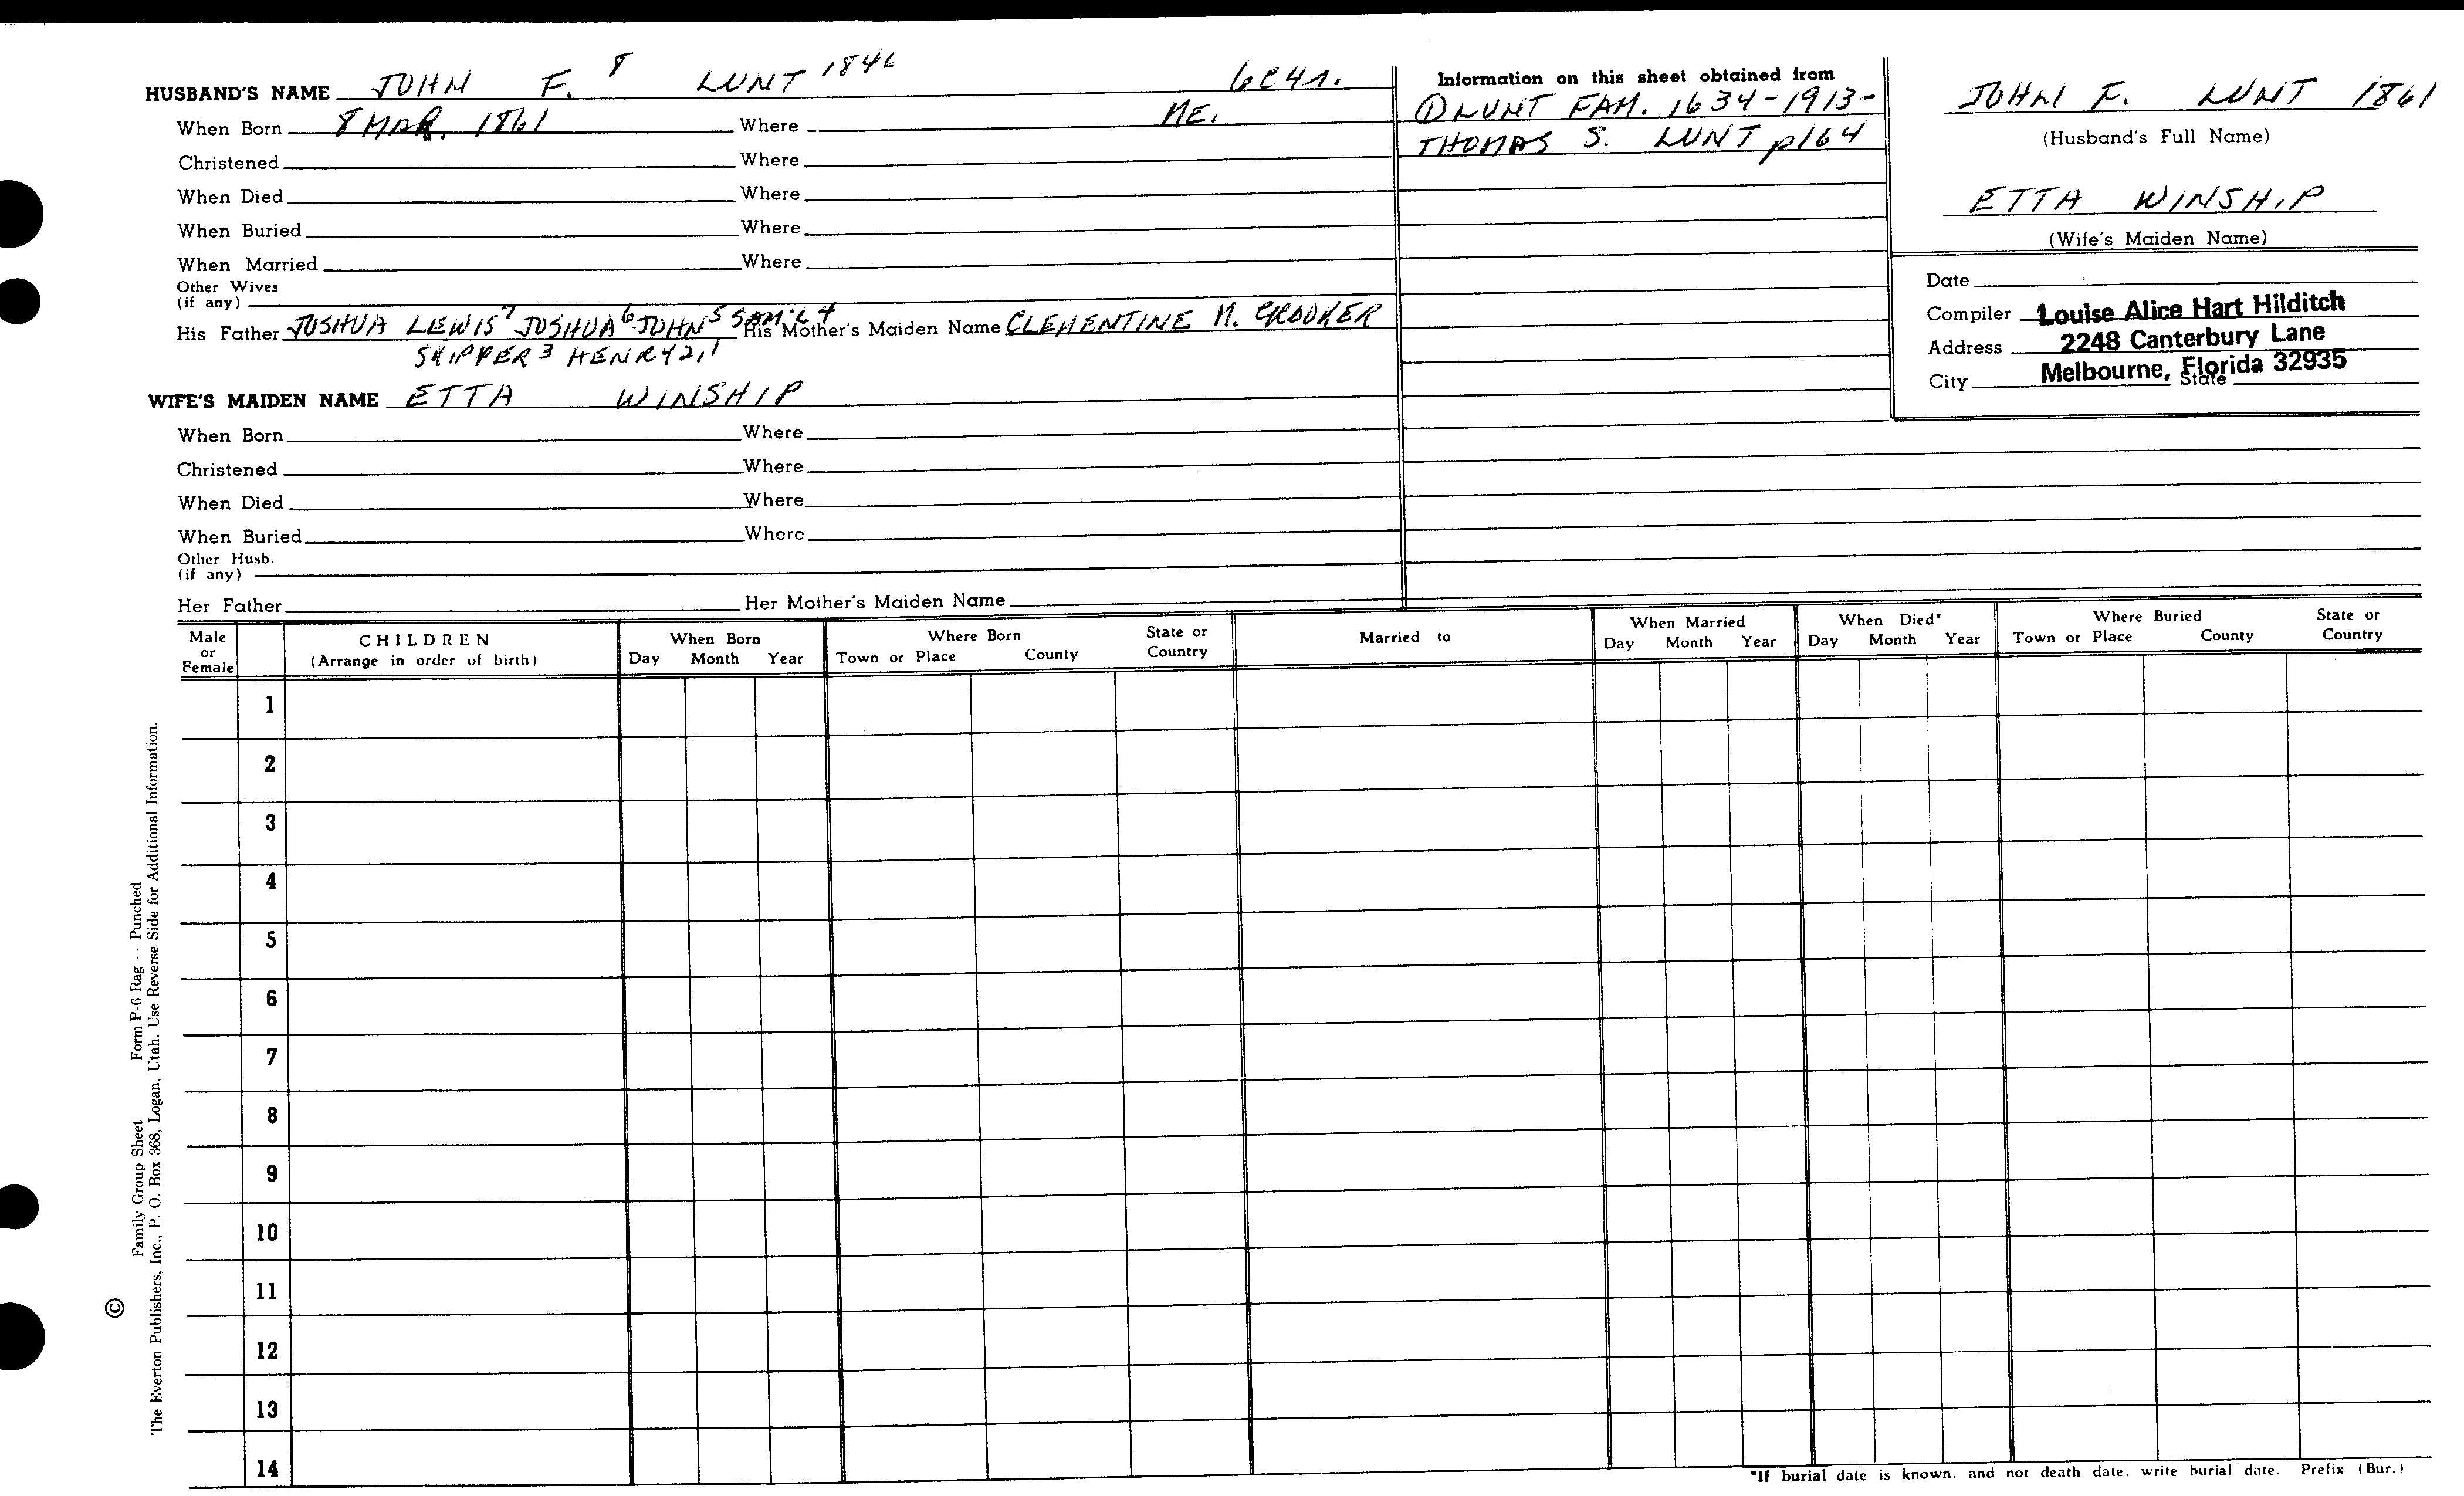 HUSBAND'S NAME JOHN F. 8 LUNT 1846
When Born 8 MAR. 1861 Where ME.
Christened Where
When Died Where
When Buried Where
When Married Where
Other Wives
(if any)
His Father JOSHUA LEWIS 7 JOSHUA 6 JOHN 5 SAM'L 4 His Mother's Maiden Name CLEMENTINE M. CROOKER
SKIPPER 3 HENRY 2,1
WIFE'S MAIDEN NAME ETTA WINSHIP
When Born Where
Christened Where
When Died Where
When Buried Where
Other Husb.
(if any)
Her Father Her Mother's Maiden Name
Information on this sheet obtained from
① LUNT FAM. 1634-1913-
THOMAS S. LUNT p164
JOHN F. LUNT 1861
(Husband's Full Name)
ETTA WINSHIP
(Wife's Maiden Name)
Date
Compiler Louise Alice Hart Hilditch
Address 2248 Canterbury Lane
City Melbourne, Florida 32935 State
Male or Female
CHILDREN
(Arrange in order of birth)
When Born
Day Month Year
Where Born
Town or Place County State or Country
Married to
When Married
Day Month Year
When Died*
Day Month Year
Where Buried
Town or Place County State or Country
1
2
3
4
5
6
7
8
9
10
11
12
13
14
*If burial date is known, and not death date, write burial date. Prefix (Bur.)
© Family Group Sheet Form P-6 Rag — Punched
The Everton Publishers, Inc., P. O. Box 368, Logan, Utah. Use Reverse Side for Additional Information.